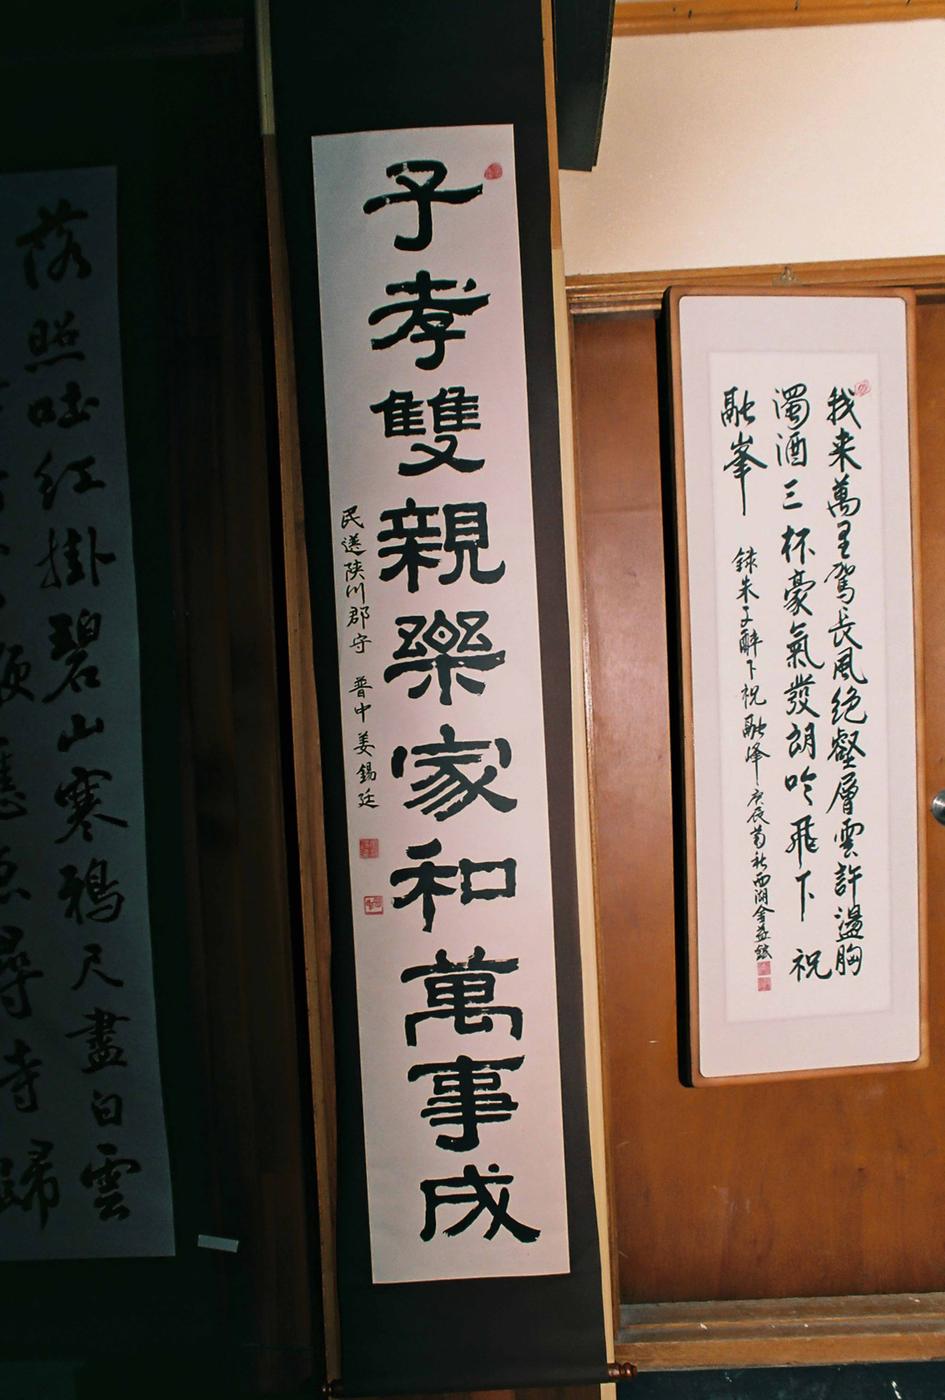 我来萬里駕長風絶壑層雲許盪胸
濁酒三杯豪氣發朗吟飛下祝
融峯
錄朱子醉下祝融峰 庚辰菊秋西湖金益
子孝雙親樂家和萬事成
民選陜川郡守 普中 姜錫廷
落照吐紅掛碧山寒鴉尺盡白雲
尋寺
歸